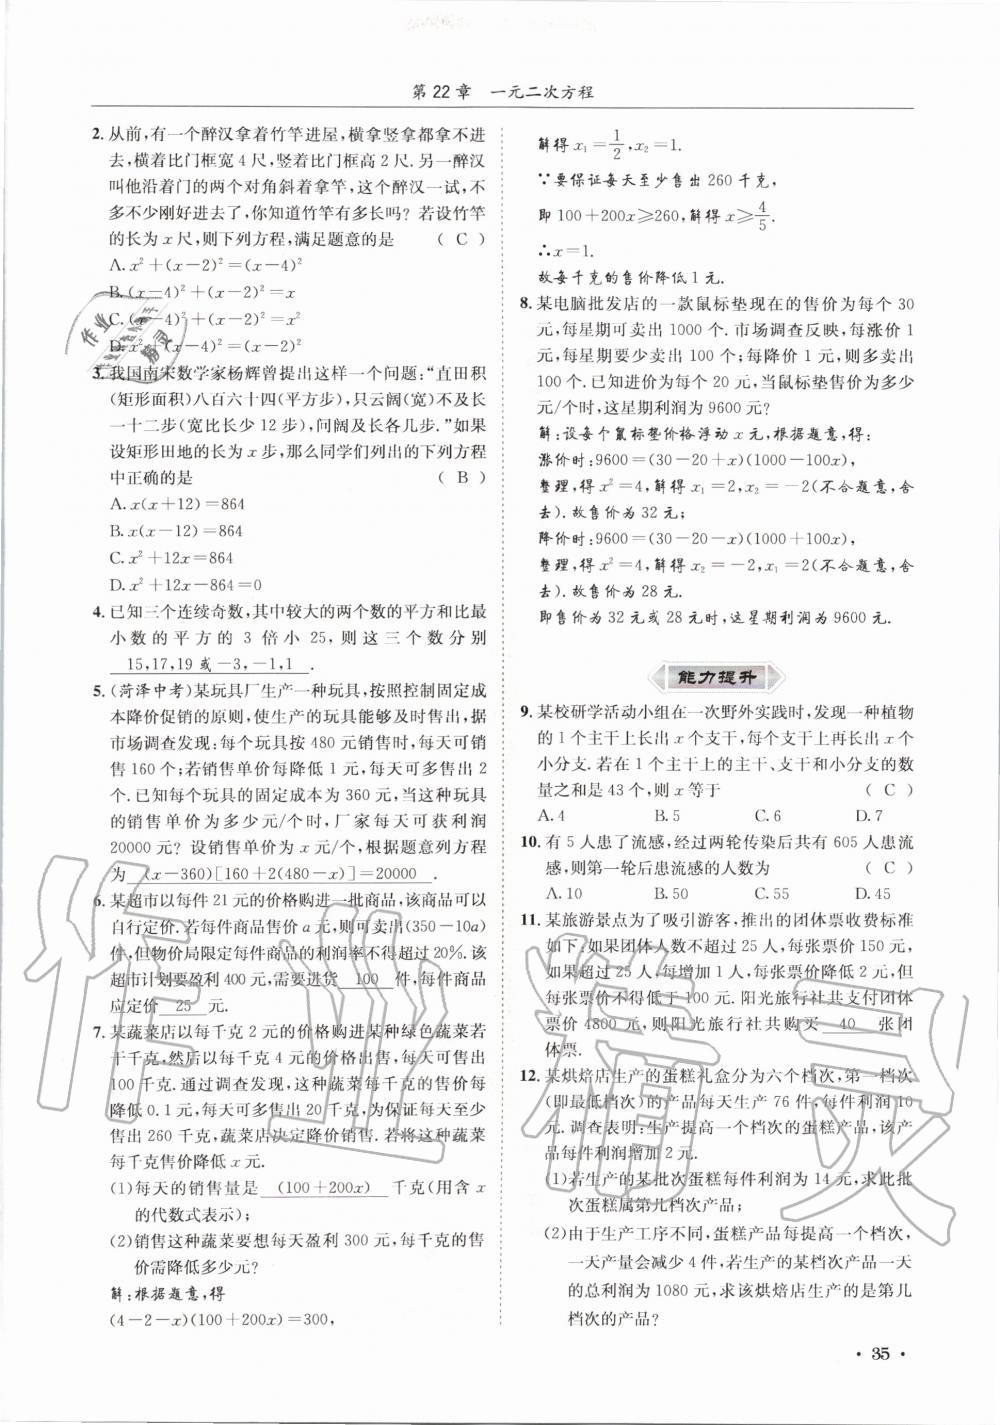 第 22 章　一元二次方程
2. 从前,有一个醉汉拿着竹竿进屋,横拿竖拿都拿不进
去,横着比门框宽 4 尺,竖着比门框高 2 尺. 另一醉汉
叫他沿着门的两个对角斜着拿竿,这个醉汉一试,不
多不少刚好进去了,你知道竹竿有多长吗? 若设竹竿
的长为 x 尺,则下列方程,满足题意的是 ( C )
A. x²+(x-2)²=(x-4)²
B. (x-4)²+(x-2)²=x
C. (x-4)²+(x-2)²=x²
D. x²+(x-4)²=(x-2)²
3. 我国南宋数学家杨辉曾提出这样一个问题:“直田积
(矩形面积)八百六十四(平方步),只云阔(宽)不及长
一十二步(宽比长少 12 步),问阔及长各几步.”如果
设矩形田地的长为 x 步,那么同学们列出的下列方程
中正确的是 ( B )
A. x(x+12)=864
B. x(x-12)=864
C. x²+12x=864
D. x²+12x-864=0
4. 已知三个连续奇数,其中较大的两个数的平方和比最
小数的平方的 3 倍小 25,则这三个数分别
15,17,19 或-3,-1,1 .
5. (菏泽中考)某玩具厂生产一种玩具,按照控制固定成
本降价促销的原则,使生产的玩具能够及时售出,据
市场调查发现:每个玩具按 480 元销售时,每天可销
售 160 个;若销售单价每降低 1 元,每天可多售出 2
个. 已知每个玩具的固定成本为 360 元,当这种玩具
的销售单价为多少元/个时,厂家每天可获利润
20000 元? 设销售单价为 x 元/个,根据题意列方程
为 (x-360)[160+2(480-x)]=20000 .
6. 某超市以每件 21 元的价格购进一批商品,该商品可以
自行定价. 若每件商品售价 a 元,则可卖出(350-10a)
件,但物价局限定每件商品的利润率不得超过 20%. 该
超市计划要盈利 400 元,需要进货 100 件,每件商品
应定价 25 元.
7. 某蔬菜店以每千克 2 元的价格购进某种绿色蔬菜若
干千克,然后以每千克 4 元的价格出售,每天可售出
100 千克. 通过调查发现,这种蔬菜每千克的售价每
降低 0.1 元,每天可多售出 20 千克,为保证每天至少
售出 260 千克,蔬菜店决定降价销售. 若将这种蔬菜
每千克售价降低 x 元.
(1)每天的销售量是 (100+200x) 千克(用含 x
的代数式表示);
(2)销售这种蔬菜要想每天盈利 300 元,每千克的售
价需降低多少元?
解:根据题意,得
(4-2-x)(100+200x)=300,
解得 x₁=1/2,x₂=1.
∵要保证每天至少售出 260 千克,
即 100+200x⩾260,解得 x⩾4/5.
∴x=1.
故每千克的售价降低 1 元.
8. 某电脑批发店的一款鼠标垫现在的售价为每个 30
元,每星期可卖出 1000 个. 市场调查反映,每涨价 1
元,每星期要少卖出 100 个;每降价 1 元,则多卖出
100 个. 已知进价为每个 20 元,当鼠标垫售价为多少
元/个时,这星期利润为 9600 元?
解:设每个鼠标垫价格浮动 x 元,根据题意,得:
涨价时:9600=(30-20+x)(1000-100x),
整理,得 x²=4,解得 x₁=2,x₂=-2(不合题意,舍
去). 故售价为 32 元;
降价时:9600=(30-20-x)(1000+100x),
整理,得 x²=4,解得 x₂=-2,x₁=2(不合题意,舍
去). 故售价为 28 元.
即售价为 32 元或 28 元时,这星期利润为 9600 元.
能力提升
9. 某校研学活动小组在一次野外实践时,发现一种植物
的 1 个主干上长出 x 个支干,每个支干上再长出 x 个
小分支. 若在 1 个主干上的主干、支干和小分支的数
量之和是 43 个,则 x 等于 ( C )
A. 4 B. 5 C. 6 D. 7
10. 有 5 人患了流感,经过两轮传染后共有 605 人患流
感,则第一轮后患流感的人数为 ( C )
A. 10 B. 50 C. 55 D. 45
11. 某旅游景点为了吸引游客,推出的团体票收费标准
如下:如果团体人数不超过 25 人,每张票价 150 元,
如果超过 25 人,每增加 1 人,每张票价降低 2 元,但
每张票价不得低于 100 元. 阳光旅行社共支付团体
票价 4800 元,则阳光旅行社共购买 40 张团
体票.
12. 某烘焙店生产的蛋糕礼盒分为六个档次,第一档次
(即最低档次)的产品每天生产 76 件,每件利润 10
元. 调查表明:生产提高一个档次的蛋糕产品,该产
品每件利润增加 2 元.
(1)若生产的某批次蛋糕每件利润为 14 元,求此批
次蛋糕属第几档次产品;
(2)由于生产工序不同,蛋糕产品每提高一个档次,
一天产量会减少 4 件,若生产的某档次产品一天
的总利润为 1080 元,该烘焙店生产的是第几
档次的产品?
· 35 ·
作业精灵